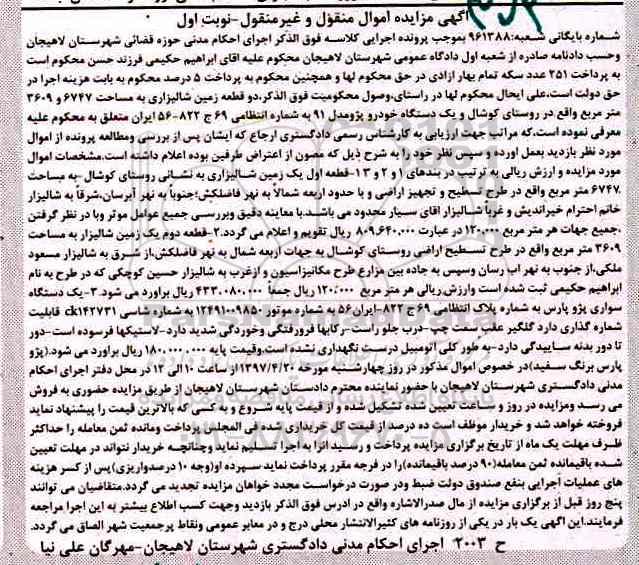 آگهی مزایده اموال منقول و غیرمنقول-نوبت اول
شماره بایگانی شعبه:۹۶۱۳۸۸ بموجب پرونده اجرایی کلاسه فوق الذکر اجرای احکام مدنی حوزه قضائی شهرستان لاهیجان
وحسب دادنامه صادره از شعبه اول دادگاه عمومی شهرستان لاهیجان محکوم علیه اقای ابراهیم حکیمی فرزند حسن محکوم است
به پرداخت ۲۵۱ عدد سکه تمام بهار ازادی در حق محکوم لها و همچنین محکوم به پرداخت ۵ درصد محکوم به بابت هزینه اجرا در
حق دولت است،علی ایحال محکوم لها در راستای،وصول محکومیت فوق الذکر،دو قطعه زمین شالیزاری به مساحت ۶۷۴۷ و ۳۶۰۹
متر مربع واقع در روستای کوشال و یک دستگاه خودرو پژومدل ۹۱ به شماره انتظامی ۶۹ ج ۸۲۲-۵۶ ایران متعلق به محکوم علیه
معرفی نموده است،که مراتب جهت ارزیابی به کارشناس رسمی دادگستری ارجاع که ایشان پس از بررسی ومطالعه پرونده از اموال
مورد نظر بازدید بعمل اورده و سپس نظر خود را به شرح ذیل که مصون از اعتراض طرفین بوده اعلام داشته است.مشخصات اموال
مورد مزایده و ارزش ریالی به ترتیب در بندهای ۱ و ۲ و ۳ ۱-قطعه اول یک زمین شالیزاری به نشانی روستای کوشال -به مساحت
۶۷۴۷ متر مربع واقع در طرح تسطیح و تجهیز اراضی و با حدود اربعه شمالاً به نهر فاضلکش؛جنوباً به نهر آبرسان،شرقاً به شالیزار
خانم احترام خیراندیش و غرباً شالیزار اقای سیار محدود می باشد.با معاینه دقیق وبررسی جمیع عوامل موثر وبا در نظر گرفتن
جمیع جهات هر متر مربع ۱۲۰،۰۰۰ در عبارت ۸۰۹،۶۴۰،۰۰۰ ریال تقویم و اعلام می گردد.۲-قطعه دوم یک زمین شالیزار به مساحت
۳۶۰۹ متر مربع واقع در طرح تسطیح اراضی روستای کوشال به جهات اربعه شمال به نهر فاضلکش،از شرق به شالیزار مسعود
ملکی،از جنوب به نهر اب رسان وسپس به جاده بین مزارع طرح مکانیزاسیون و ازغرب به شالیزار حسین کوچکی که در طرح به نام
ابراهیم حکیمی ثبت شده است وارزش ریالی هر متر مربع ۱۲۰،۰۰۰ ریال جمعاً ۴۳۳،۰۸۰،۰۰۰ ریال براورد می شود.۳-یک دستگاه
سواری پژو پارس به شماره پلاک انتظامی ۶۹ ج ۸۲۲-ایران۵۶ به شماره موتور ۱۲۴۹۱۰۰۹۸۵ به شماره شاسی ck۱۴۲۷۳۱ قابلیت
شماره گذاری دارد گلگیر عقب سمت چپ-درب جلو راست-رکابها فرورفتگی وخوردگی شدید دارد-لاستیکها فرسوده است-دور
تا دور بدنه ساییدگی دارد-به طور کلی اتومبیل درست نگهداری نشده است.وقیمت پایه ۱۸۰،۰۰۰،۰۰۰ ریال براورد می شود.(پژو
پارس برنگ سفید)در خصوص اموال مذکور در روز چهارشنبه مورخه ۱۳۹۷/۴/۲۰ از ساعت ۱۰ الی ۱۲ در محل دفتر اجرای احکام
مدنی دادگستری شهرستان لاهیجان با حضور نماینده محترم دادستان شهرستان لاهیجان از طریق مزایده حضوری به فروش
می رسد ومزایده در روز و ساعت تعیین شده تشکیل شده و از قیمت پایه شروع و به کسی که بالاترین قیمت را پیشنهاد نماید
فروخته خواهد شد و خریدار موظف است ده درصد از قیمت کل خریداری شده فی المجلس پرداخت ومانده ثمن معامله را حداکثر
ظرف مهلت یک ماه از تاریخ برگزاری مزایده پرداخت و رسید انرا به اجرا تسلیم نماید وچنانچه خریدار نتواند در مهلت تعیین
شده باقیمانده ثمن معامله(۹۰ درصد باقیمانده)را در فرجه مقرر پرداخت نماید سپرده او(وجه ۱۰ درصدواریزی)پس از کسر هزینه
های عملیات اجرایی بنفع صندوق دولت ضبط ودر صورت درخواست مجدد خواهان مزایده تجدید می گردد.متقاضیان می توانند
پنج روز قبل از برگزاری مزایده از مال صدرالاشاره واقع در ادرس فوق الذکر بازدید وجهت کسب اطلاع بیشتر به این اجرا مراجعه
فرمایند.این اگهی یک بار در یکی از روزنامه های کثیرالانتشار محلی درج و در معابر عمومی ونقاط پرجمعیت شهر الصاق می گردد.
ح ۲۰۰۳ اجرای احکام مدنی دادگستری شهرستان لاهیجان-مهرگان علی نیا